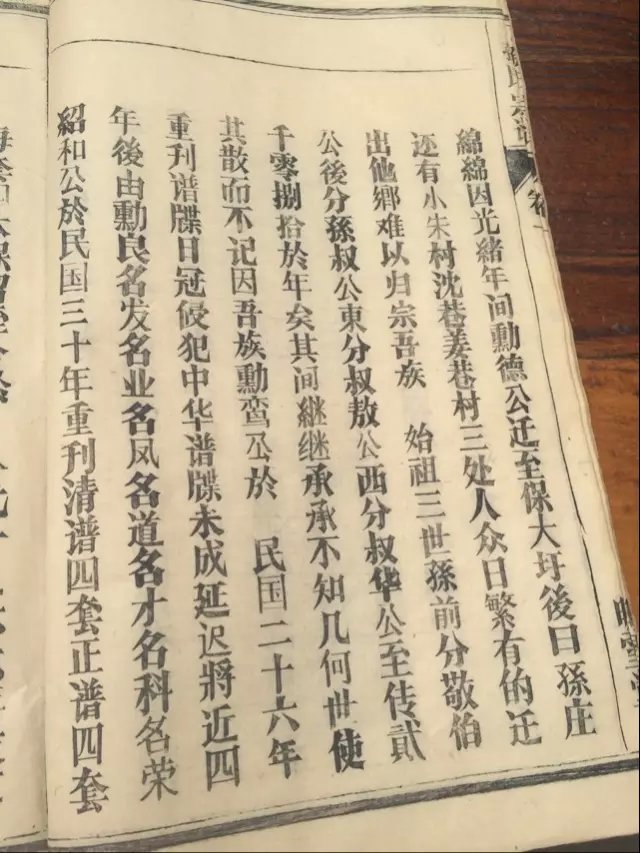 綿綿因光緒年间勳德公迁至保大圩後曰孫庄
还有小朱村沈巷姜巷村三处人众日繁有的迁
出他鄉难以归宗吾族 始祖三世孫前分敬伯
公後分孫叔公東分叔敖公西分叔华公至传貳
千零捌拾於年矣其间継継承承不知几何世使
其散而不记因吾族勳鸾公於 民国二十六年
重刊谱牒日冠侵犯中华谱牒未成延迟將近四
年後由勳良名发名业名凤名道名才名科名荣
紹和公於民国三十年重刊清谱四套正谱四套